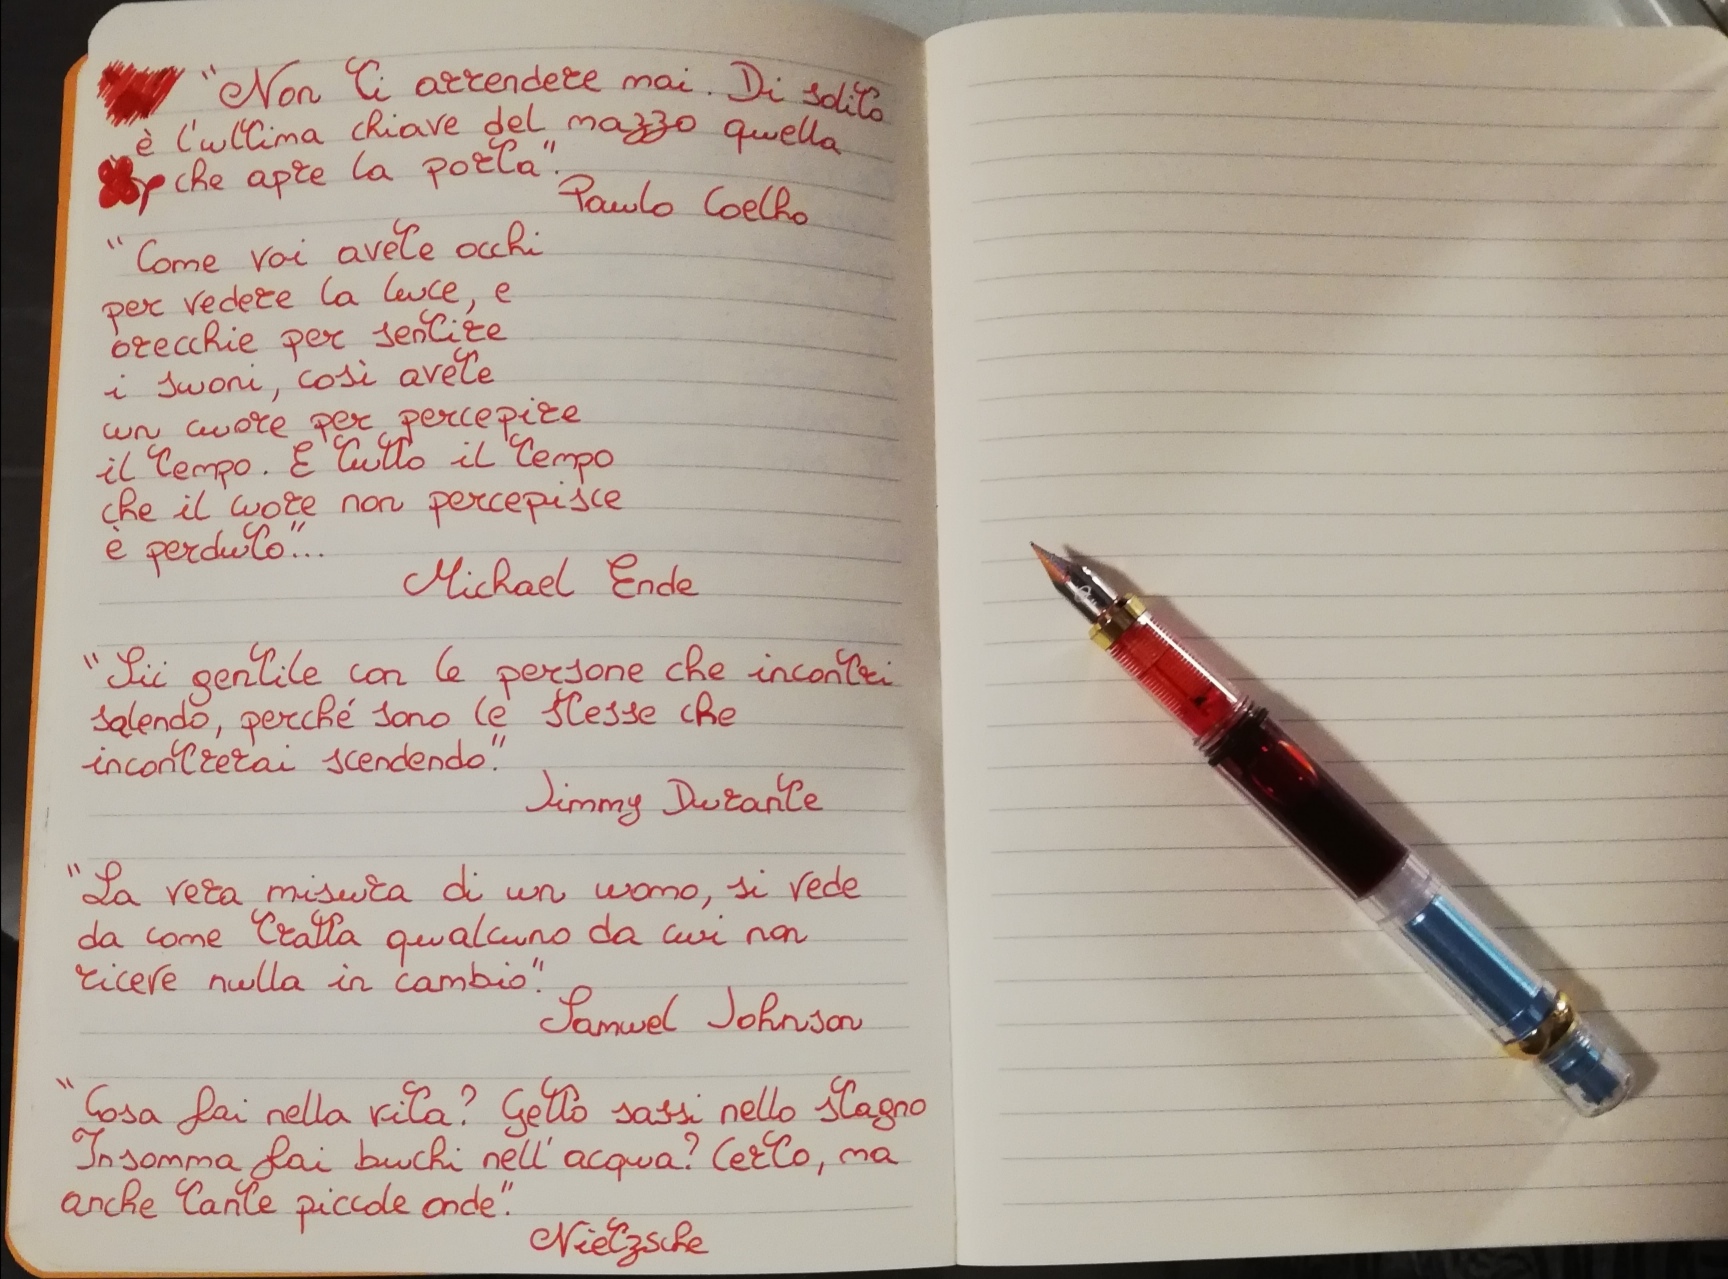 "Non ti arrendere mai. Di solito
è l'ultima chiave del mazzo quella
che apre la porta".
Paulo Coelho
"Come voi avete occhi
per vedere la luce, e
orecchie per sentire
i suoni, così avete
un cuore per percepire
il tempo. E tutto il tempo
che il cuore non percepisce
è perduto"...
Michael Ende
"Sii gentile con le persone che incontri
salendo, perché sono le stesse che
incontrerai scendendo."
Jimmy Durante
"La vera misura di un uomo, si vede
da come tratta qualcuno da cui non
riceve nulla in cambio".
Samuel Johnson
"Cosa fai nella vita? Getto sassi nello stagno
Insomma fai buchi nell'acqua? Certo, ma
anche tante piccole onde".
Nietzsche